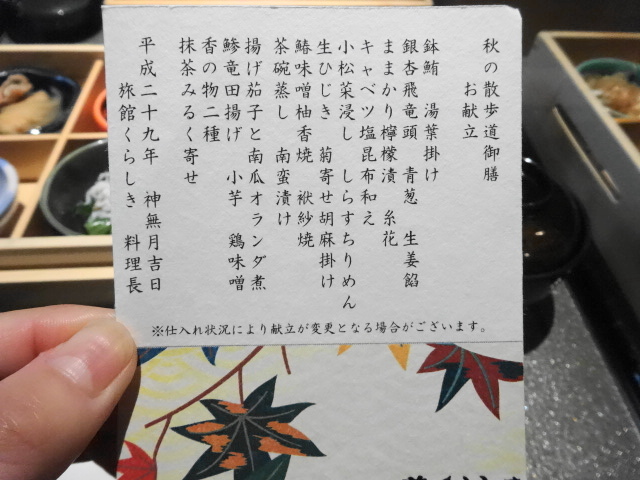 秋の散歩道御膳
お献立
鉢鮪　湯葉掛け
銀杏飛竜頭　青葱　生姜餡
ままかり檸檬漬　糸花
キャベツ塩昆布和え
小松菜浸し　しらすちりめん
生ひじき　菊寄せ胡麻掛け
鰆味噌柚香焼　袱紗焼
茶碗蒸し　南蛮漬け
揚げ茄子と南瓜オランダ煮
鯵竜田揚げ　小芋　鶏味噌
香の物二種
抹茶みるく寄せ
平成二十九年　神無月吉日
旅館くらしき　料理長
※仕入れ状況により献立が変更となる場合がございます。